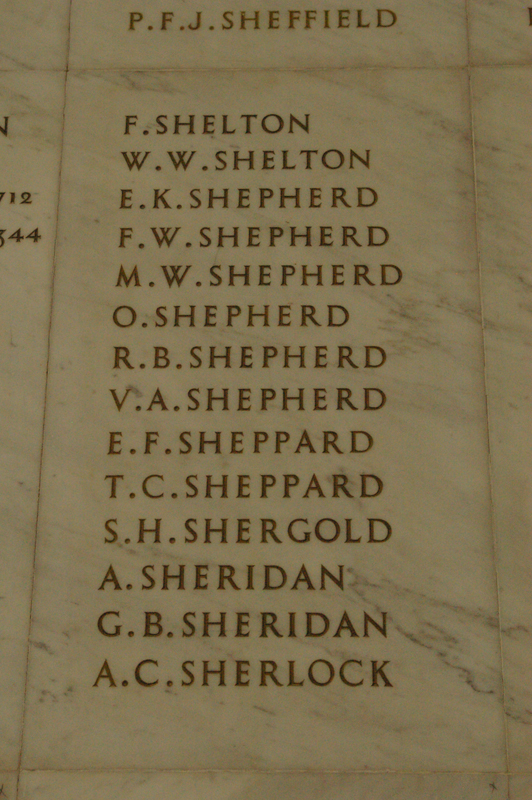 P.F.J.SHEFFIELD
F.SHELTON
W.W.SHELTON
E.K.SHEPHERD
F.W.SHEPHERD
M.W.SHEPHERD
O.SHEPHERD
R.B.SHEPHERD
V.A.SHEPHERD
E.F.SHEPPARD
T.C.SHEPPARD
S.H.SHERGOLD
A.SHERIDAN
G.B.SHERIDAN
A.C.SHERLOCK